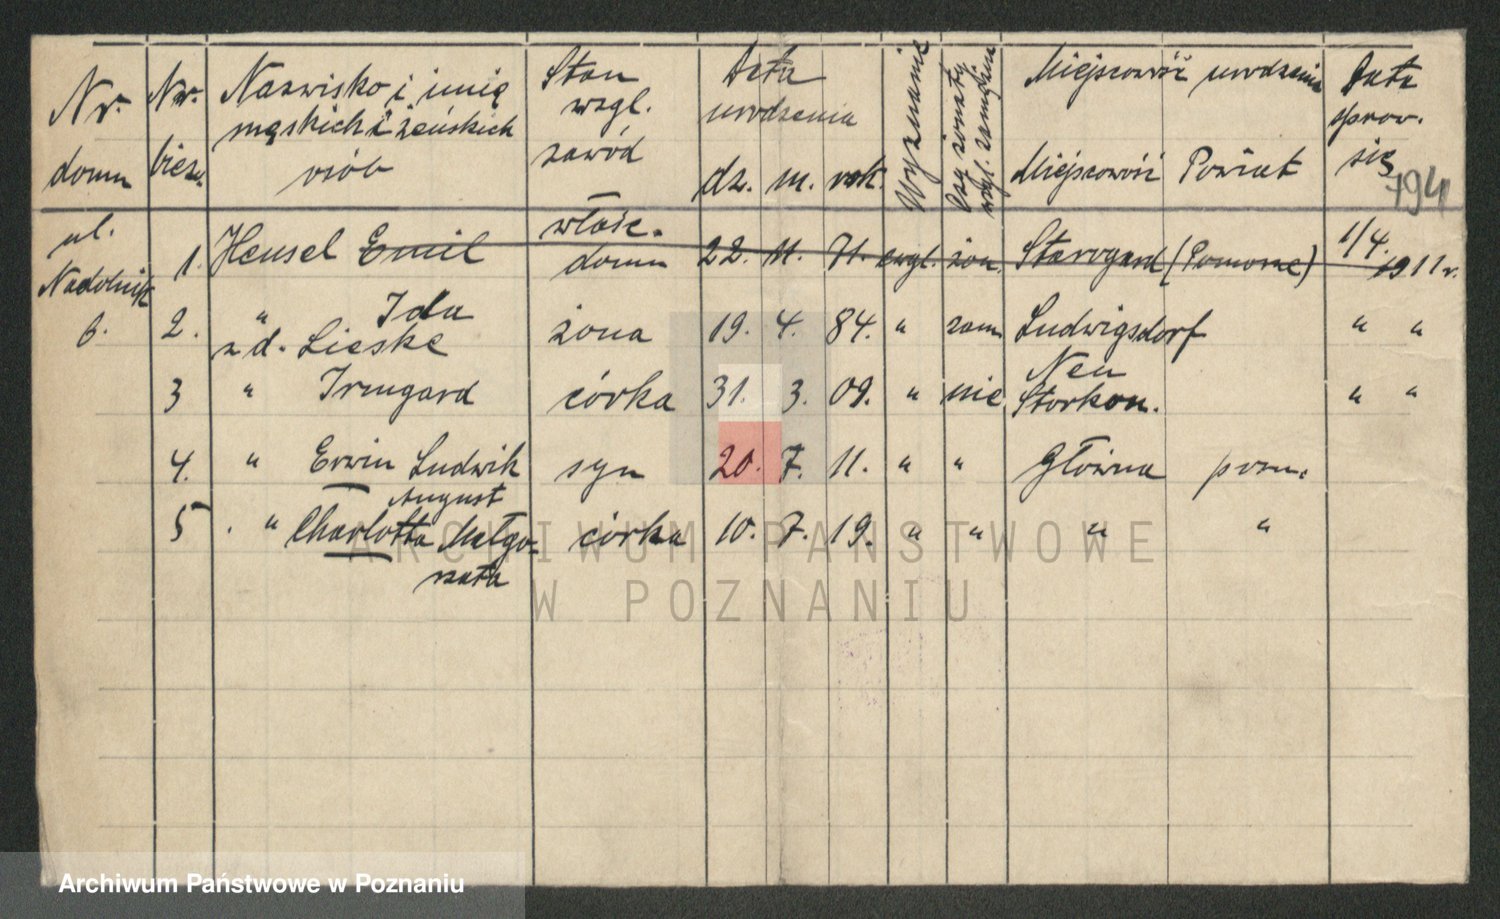 Nr. domu
Nr. bież.
Nazwisko i imię męskich i żeńskich osób
Stan wzgl. zawód
Data urodzenia
dz. m. rok.
Wyznanie
Czy żonaty wzgl. zamężna
Miejscowość urodzenia
Miejscowość Powiat
Data sprow. się
794
ul. Nadolnik 6.
1. Hensel Emil właśc. domu 22. 11. 71. ewgl. żon. Starogard (Pomorze) 1/4. 1911 r.
2. " Ida żona 19. 4. 84. " zam Ludwigsdorf " "
z d. Lieske
3 " Irmgard córka 31. 3. 09. " nie Neu Storkow. " "
4. " Erwin Ludwik August syn 20. 7. 11. " " Główna pozn.
5 . " Charlotta Małgorzata córka 10. 7. 19. " " " "
ARCHIWUM PAŃSTWOWE
W POZNANIU
Archiwum Państwowe w Poznaniu